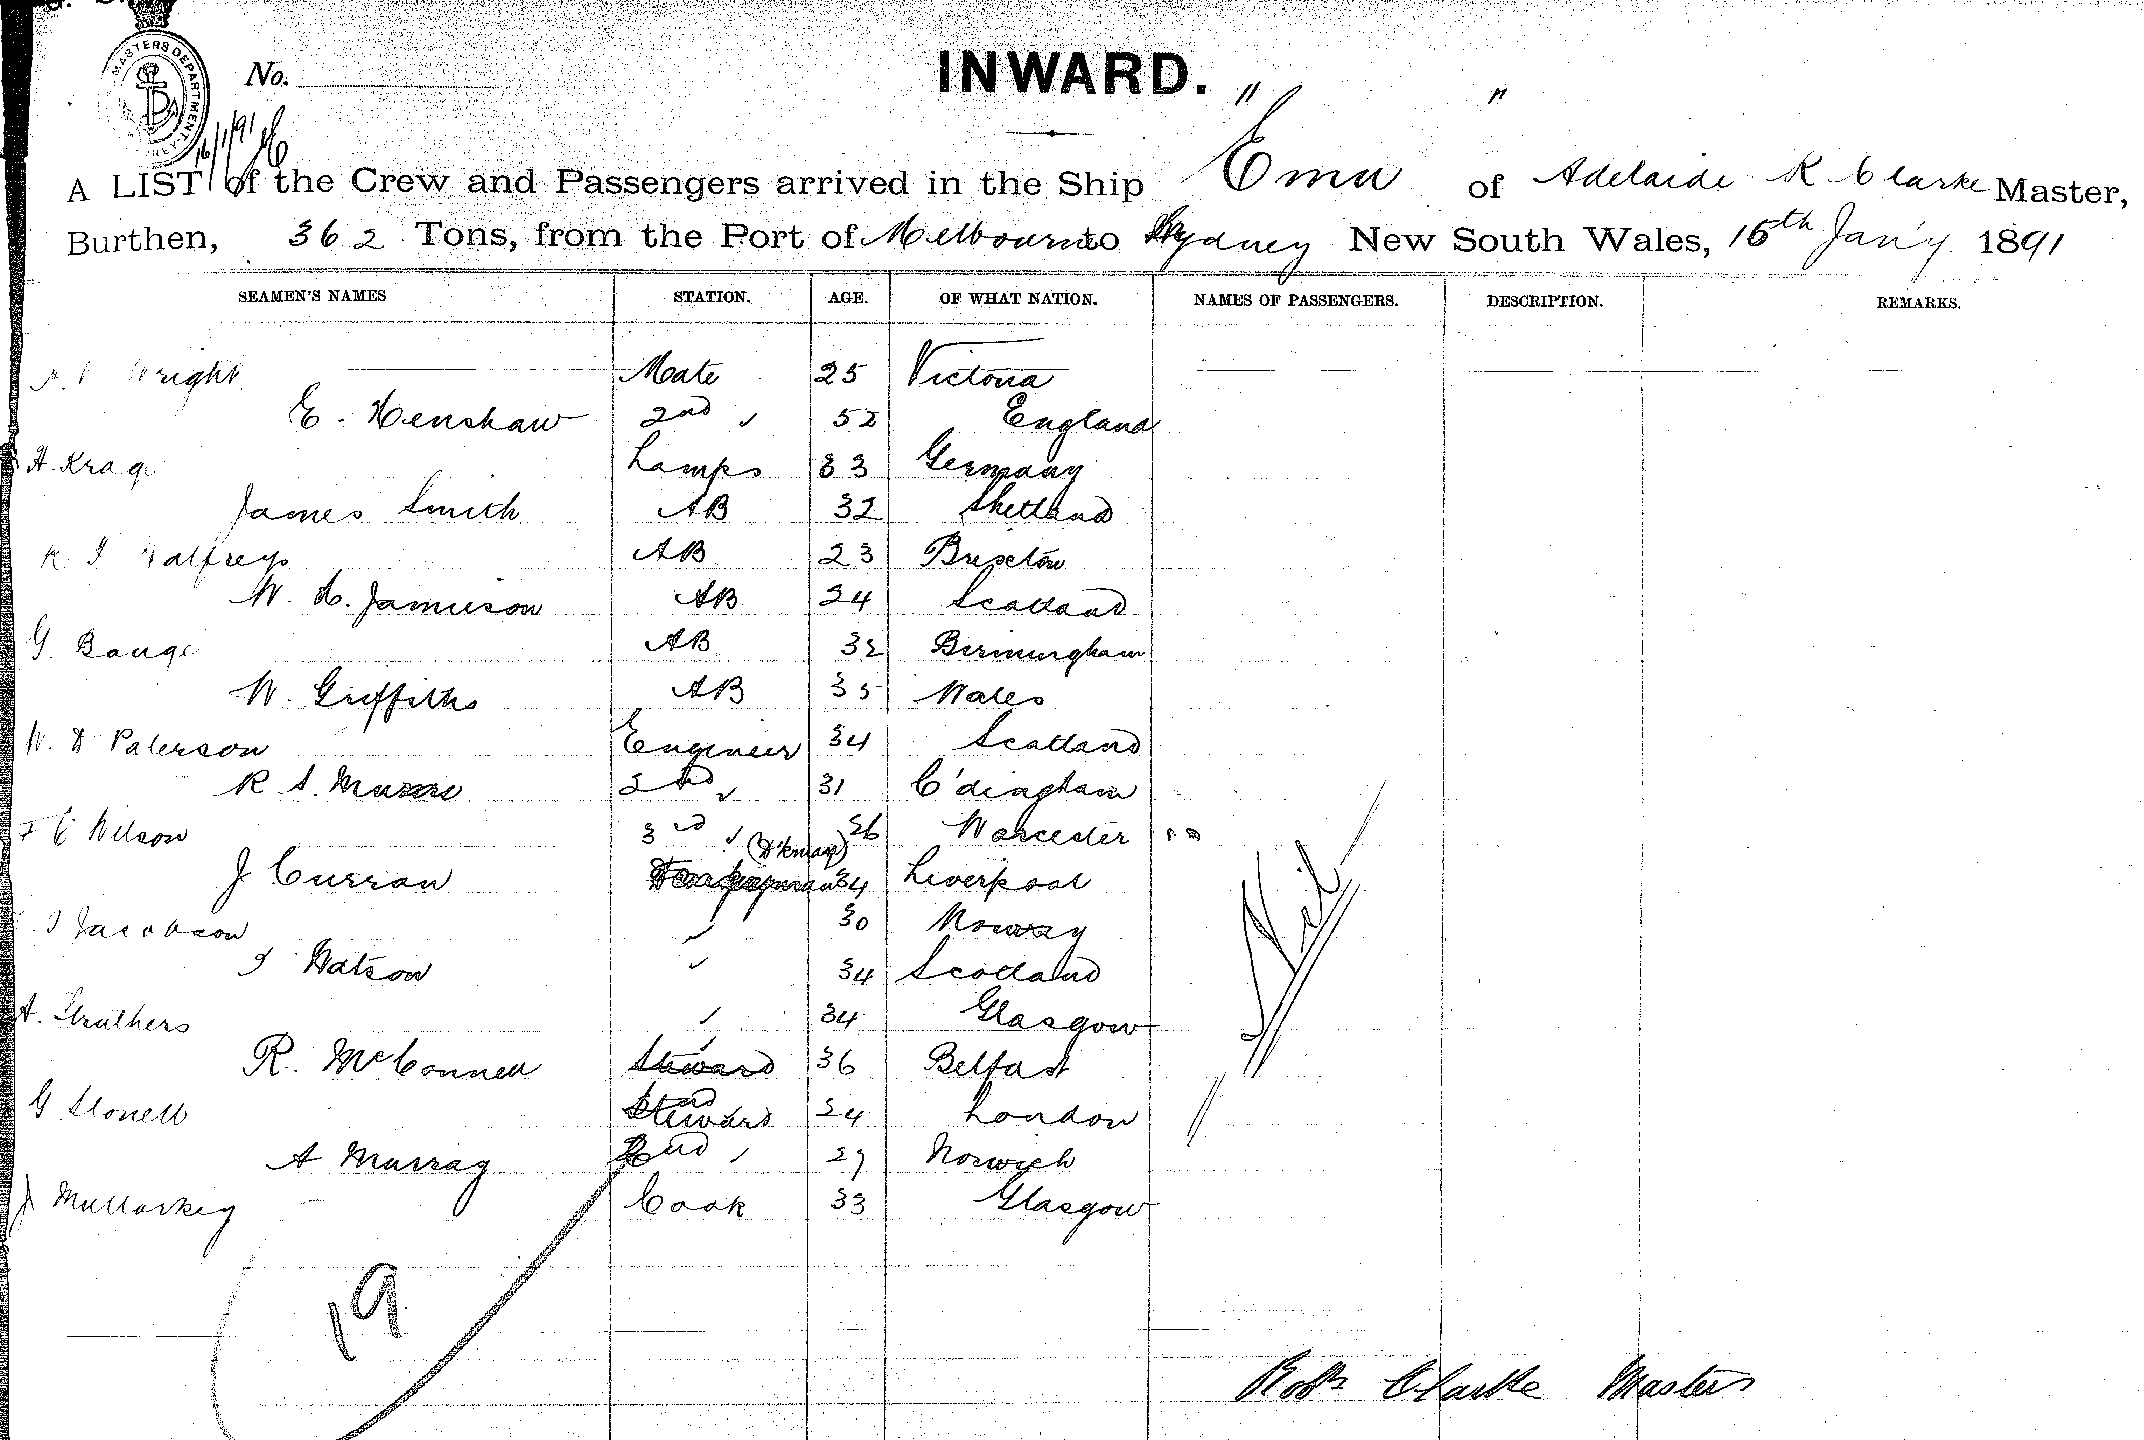 MASTERS DEPARTMENT
No.
INWARD.
16/1/91
A LIST of the Crew and Passengers arrived in the Ship "Emu" of Adelaide R Clarke Master,
Burthen, 362 Tons, from the Port of Melbourne to Sydney New South Wales, 16th Jan'y 1891
SEAMEN'S NAMES STATION. AGE. OF WHAT NATION. NAMES OF PASSENGERS. DESCRIPTION. REMARKS.
Wright Mate 25 Victoria
E. Henshaw 2nd " 52 England
H. Krag Lamps 33 Germany
James Smith AB 32 Shetland
AB 23 Brixton
W. H. Jamieson AB 24 Scotland
G. Bauge AB 32 Birmingham
W. Griffiths AB 35 Wales
W. D Paterson Engineer 34 Scotland
R S. Munro 2nd " 31 C'dingham
F C Wilson 3rd " 26 Worcester
J Curran 34 Liverpool
Jacobson " 30 Norway
Watson " 34 Scotland
A. Struthers " 34 Glasgow
R. McConnell Steward 36 Belfast
G Stonell Steward 24 London
A Murray 2nd " 29 Norwich
J Mullarkey Cook 33 Glasgow
Nil
19
Robt Clarke Master